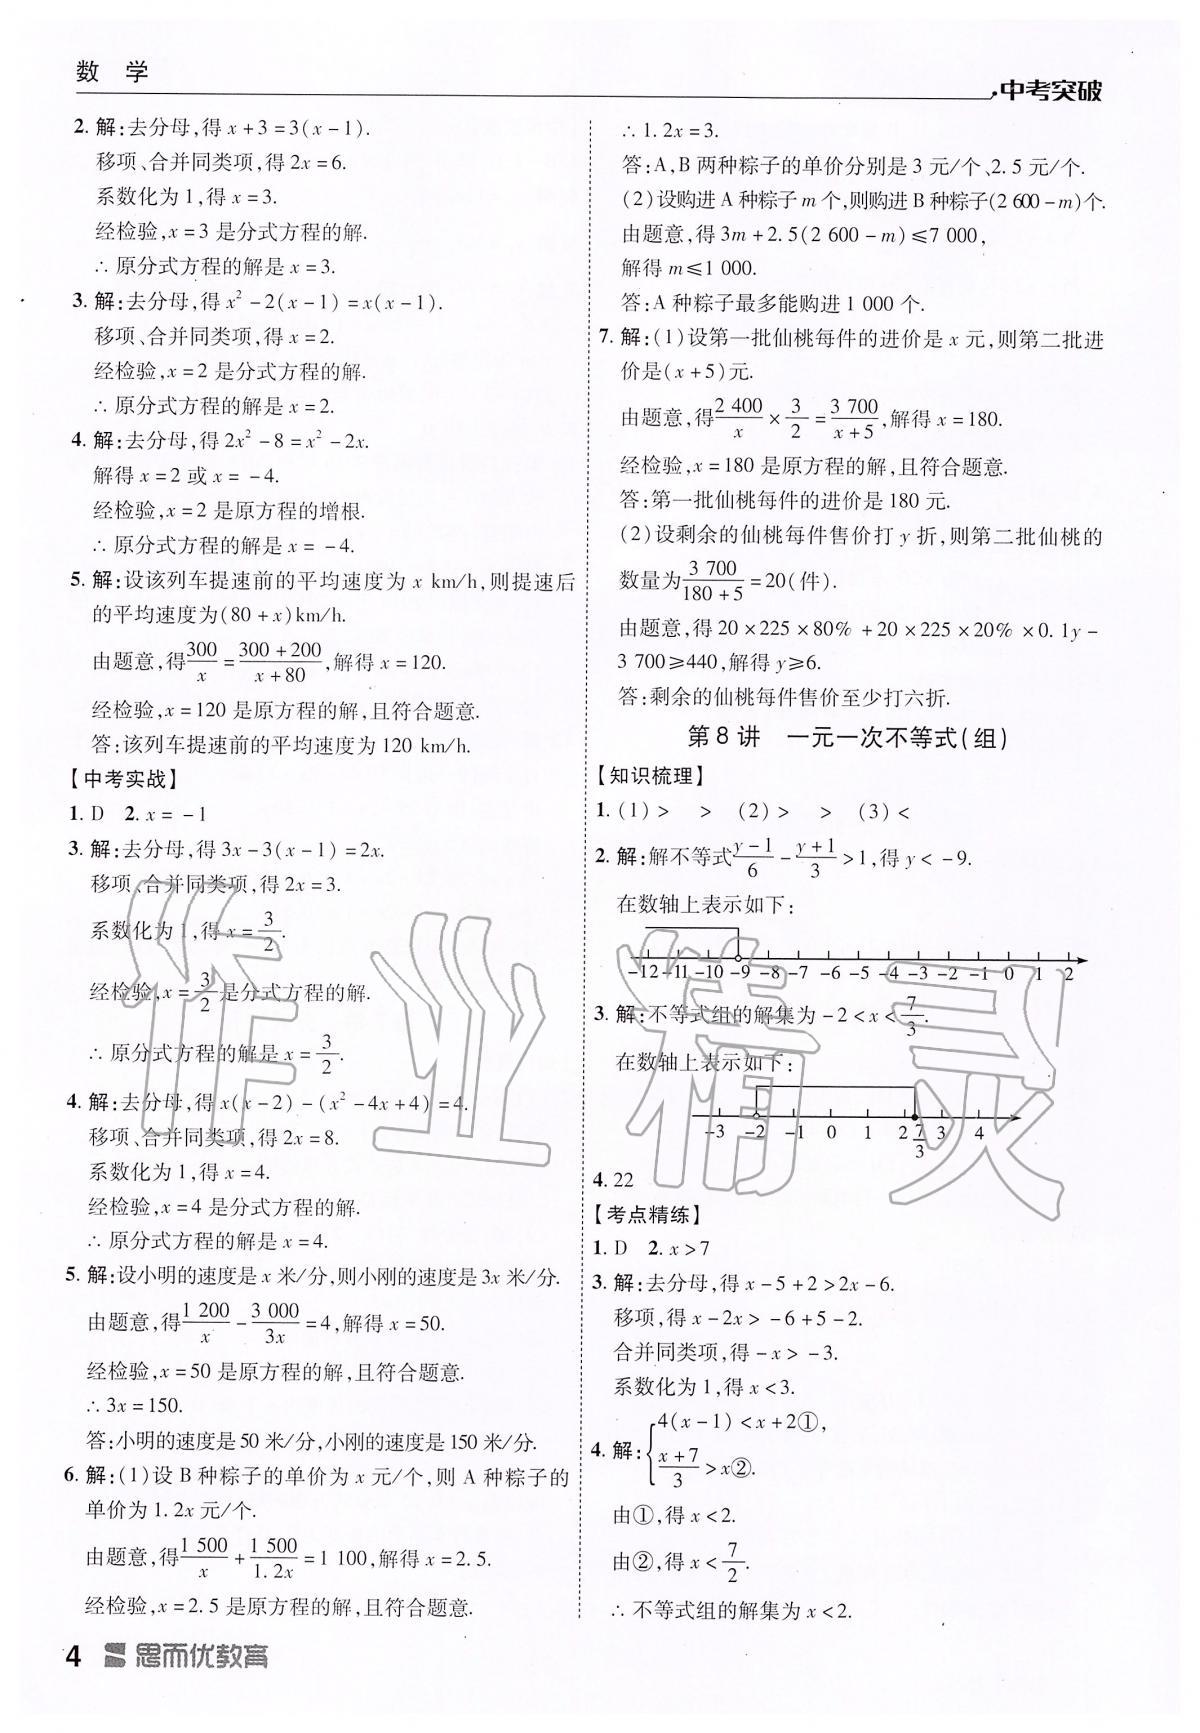 数 学
中考突破
2. 解:去分母,得 x+3=3(x-1).
移项、合并同类项,得 2x=6.
系数化为 1,得 x=3.
经检验,x=3 是分式方程的解.
∴ 原分式方程的解是 x=3.
3. 解:去分母,得 x²-2(x-1)=x(x-1).
移项、合并同类项,得 x=2.
经检验,x=2 是分式方程的解.
∴ 原分式方程的解是 x=2.
4. 解:去分母,得 2x²-8=x²-2x.
解得 x=2 或 x=-4.
经检验,x=2 是原方程的增根.
∴ 原分式方程的解是 x=-4.
5. 解:设该列车提速前的平均速度为 x km/h,则提速后
的平均速度为(80+x)km/h.
由题意,得300/x=(300+200)/(x+80),解得 x=120.
经检验,x=120 是原方程的解,且符合题意.
答:该列车提速前的平均速度为 120 km/h.
【中考实战】
1. D 2. x=-1
3. 解:去分母,得 3x-3(x-1)=2x.
移项、合并同类项,得 2x=3.
系数化为 1,得 x=3/2.
经检验,x=3/2是分式方程的解.
∴ 原分式方程的解是 x=3/2.
4. 解:去分母,得 x(x-2)-(x²-4x+4)=4.
移项、合并同类项,得 2x=8.
系数化为 1,得 x=4.
经检验,x=4 是分式方程的解.
∴ 原分式方程的解是 x=4.
5. 解:设小明的速度是 x 米/分,则小刚的速度是 3x 米/分.
由题意,得1 200/x-3 000/3x=4,解得 x=50.
经检验,x=50 是原方程的解,且符合题意.
∴ 3x=150.
答:小明的速度是 50 米/分,小刚的速度是 150 米/分.
6. 解:(1)设 B 种粽子的单价为 x 元/个,则 A 种粽子的
单价为 1.2x 元/个.
由题意,得1 500/x+1 500/1.2x=1 100,解得 x=2.5.
经检验,x=2.5 是原方程的解,且符合题意.
∴ 1.2x=3.
答:A,B 两种粽子的单价分别是 3 元/个、2.5 元/个.
(2)设购进 A 种粽子 m 个,则购进 B 种粽子(2 600-m)个.
由题意,得 3m+2.5(2 600-m)≤7 000,
解得 m≤1 000.
答:A 种粽子最多能购进 1 000 个.
7. 解:(1)设第一批仙桃每件的进价是 x 元,则第二批进
价是(x+5)元.
由题意,得2 400/x×3/2=3 700/(x+5),解得 x=180.
经检验,x=180 是原方程的解,且符合题意.
答:第一批仙桃每件的进价是 180 元.
(2)设剩余的仙桃每件售价打 y 折,则第二批仙桃的
数量为3 700/(180+5)=20(件).
由题意,得 20×225×80%+20×225×20%×0.1y-
3 700≥440,解得 y≥6.
答:剩余的仙桃每件售价至少打六折.
第 8 讲 一元一次不等式(组)
【知识梳理】
1. (1)> > (2)> > (3)<
2. 解:解不等式(y-1)/6-(y+1)/3>1,得 y<-9.
在数轴上表示如下:
-12 -11 -10 -9 -8 -7 -6 -5 -4 -3 -2 -1 0 1 2
3. 解:不等式组的解集为 -2<x<7/3.
在数轴上表示如下:
-3 -2 -1 0 1 2 7/3 3 4
4. 22
【考点精练】
1. D 2. x>7
3. 解:去分母,得 x-5+2>2x-6.
移项,得 x-2x>-6+5-2.
合并同类项,得 -x>-3.
系数化为 1,得 x<3.
4. 解:{4(x-1)<x+2①,
(x+7)/3>x②.
由①,得 x<2.
由②,得 x<7/2.
∴ 不等式组的解集为 x<2.
作业精灵
4 思而优教育